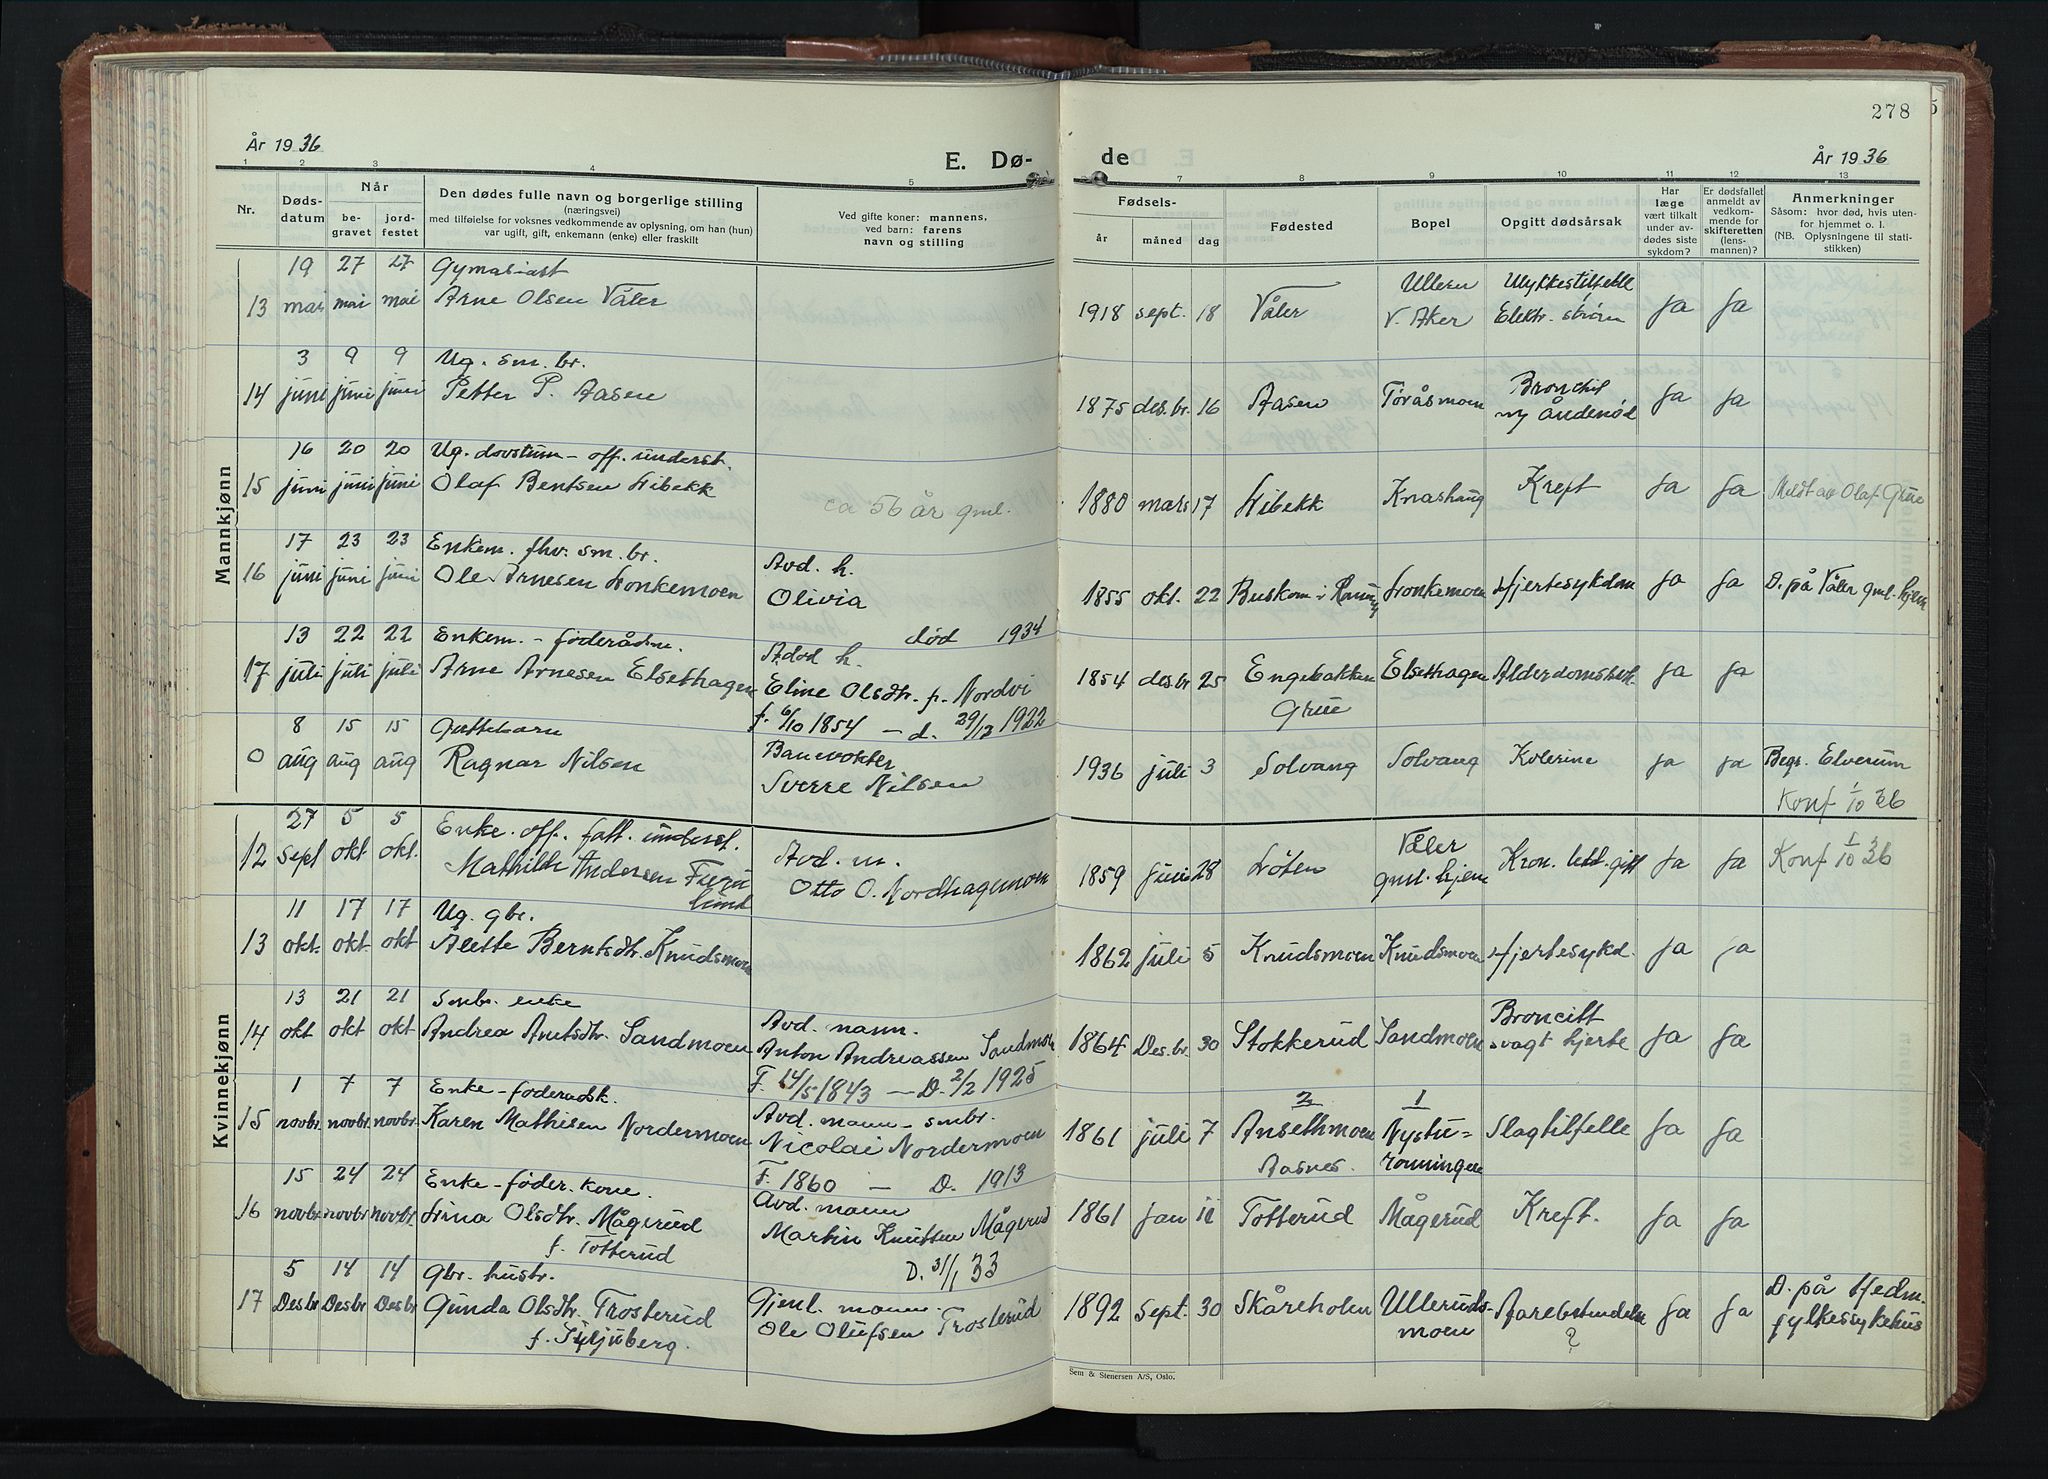 278
År 1936
E. Dø-
de
År 1936
1 2 3 4 5 7 8 9 10 11 12 13
Nr.
Døds-
datum
Når
be-
gravet
jord-
festet
Den dødes fulle navn og borgerlige stilling
(næringsvei)
med tilføielse for voksnes vedkommende av oplysning, om han (hun)
var ugift, gift, enkemann (enke) eller fraskilt
Ved gifte koner: mannens,
ved barn: farens
navn og stilling
Fødsels-
år måned dag
Fødested
Bopel
Opgitt dødsårsak
Har
læge
vært tilkalt
under av-
dødes siste
sykdom?
Er dødsfallet
anmeldt av
vedkom-
mende for
skifteretten
(lens-
mannen)?
Anmerkninger
Såsom: hvor død, hvis uten-
for hjemmet o. l.
(NB. Oplysningene til stati-
stikken)
Mannkjønn
19 27 27 Gymasiast Ullern Ulykkestilfelle
13 mai mai mai Arne Olsen Våler 1918 sept. 18 Våler V. Aker Elektr. strøm Ja Ja
3 9 9 Ug. sm. br. Bronchit
14 juni juni juni Petter P. Aasen 1875 des.br. 16 Aasen Toråsmoen Åndenød Ja Ja
16 20 20 Ug. døvstum - off. underst.
15 juni juni juni Olaf Bentsen Libekk ca 56 år gml. 1880 mars 17 Libekk Knashaug Kreft Ja Ja Meldt av Olaf Grue
17 23 23 Enkem. fhv. sm. br. Avd. h.
16 juni juni juni Ole Arnesen Lonkemoen Olivia 1855 okt. 22 Buskom i Lonkemoen Hjertesykdom Ja Ja D. på Våler gml. hjem
død 1934
13 22 22 Enkem. - føderådm. Avd h.
17 juli juli juli Arne Arnesen Elsethagen Eline Olsdtr. f. Nordvi 1854 des.br 25 Engebakken Elsethagen Alderdomssvek. Ja Ja
Grue
f. 6/10 1854 - d. 29/12 1922
8 15 15 Guttebarn Banevokter
0 aug aug aug Ragnar Nilsen Sverre Nilsen 1936 juli 3 Solvang Solvang Kolerine Ja Ja Begr. Elverum
Konf 1/10 36
Kvinnekjønn
27 5 5 Enke. off. fatt. underst. Avd. m. Våler
12 sept okt okt. Mathilde Andersen Furu Otto O. Nordhagemoen 1859 juni 28 Löten gml. hjem Kron. ledd. gikt Ja Ja Konf 1/10 36
lund
11 17 17 Ug. gbr.
13 okt. okt okt Alette Berntsdtr. Knudsmoen 1862 juli 5 Knudsmoen Knudsmoen Hjertesykd. Ja Ja
13 21 21 Smbr. enke Avd. mann. Broncitt
14 okt okt okt Andrea Amtsdtr. Sandmoen Anton Andreassen Sandmoen 1864 Des.br. 30 Stokkerud Sandmoen svagt hjerte Ja Ja
F. 14/5 1843 - D. 2/2 1925
1 7 7 Enke - føderådsk. Avd. mann - smbr. 2 1
15 novbr. novbr. novbr. Karen Mathisen Nordermoen Nicolai Nordermoen 1861 juli 7 Ansethmoen Nystu= Slagtilfelle Ja Ja
Aasnes. ronningen
F. 1860 - D. 1913
15 24 24 Enke - føder. kone. Avd. mann
16 novbr. novbr. novbr. Lina Olsdtr. Mågerud Martin Knutsen Mågerud 1861 Jan 11 Totterud Mågerud Kreft. Ja Ja
f. Totterud
D. 31/1 33
5 14 14 Gbr. hustr. Gjenl. mann. D. på Hedm.
17 Desbr Desbr Desbr Gunda Olsdtr. Trosterud Ole Olufsen Trosterud 1892 Sept. 30 Skåreholen Ulleruds- Aarebetendelse Ja Ja fylkessykehus
f. Syljuberg. moen ?
Sem & Stenersen A/S, Oslo.